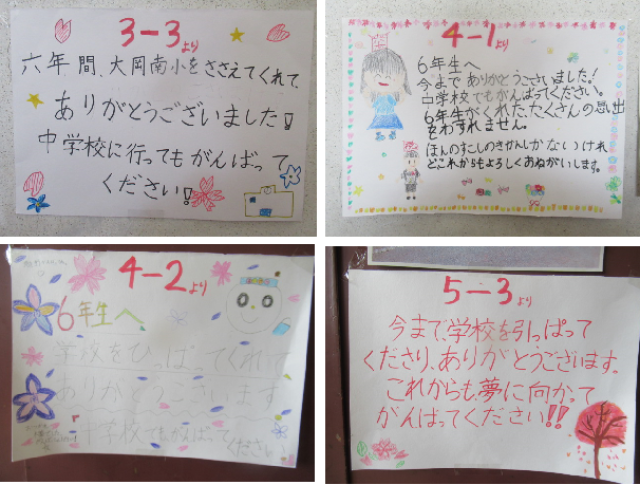 3-3より
六年間、大岡南小をささえてくれて、
ありがとうございました!
中学校に行ってもがんばって
ください!
4-1より
6年生へ
今までありがとうございました!
中学校でもがんばってください。
6年生がくれた、たくさんの思い出
をわすれません。
ほんのすこしのきかんしかないけれ
どこれからもよろしくおねがいします。
4-2より
6年生へ
学校をひっぱってくれて
ありがとうございます
中学校でもがんばって
ください
5-3より
今まで、学校を引っぱって
くださり、ありがとうございます。
これからも、夢に向かって
がんばってください!!